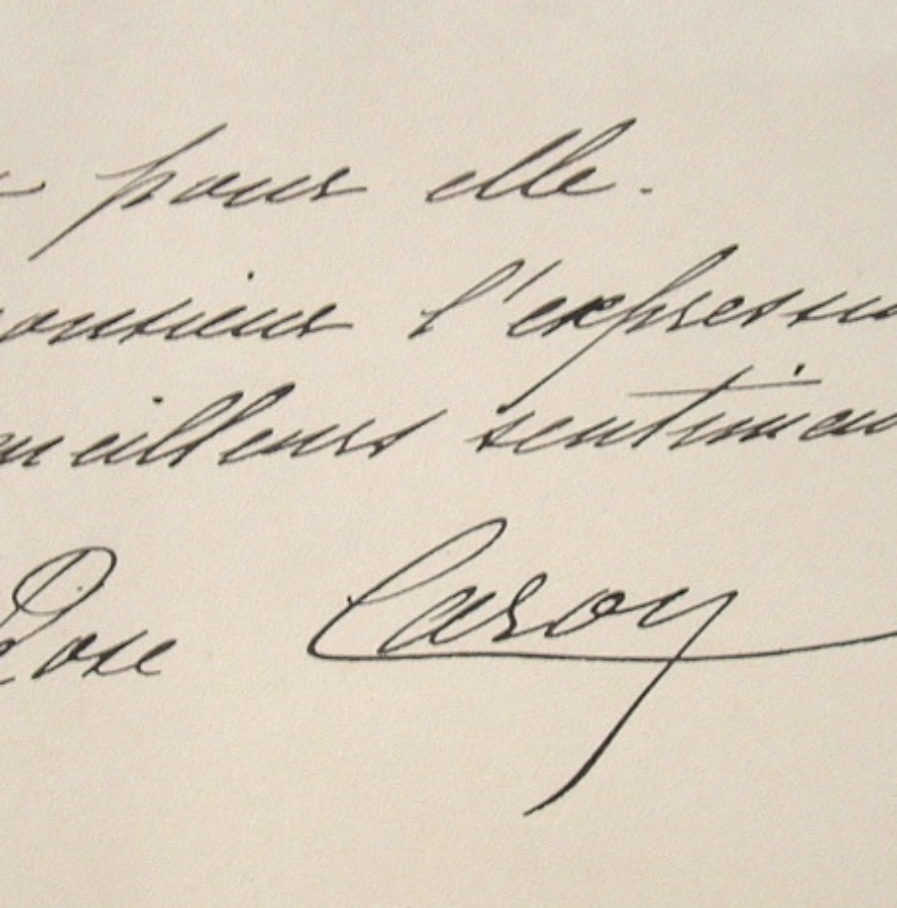 pour elle.
onsieur l'expressio
meilleurs sentimen
Rose Caron